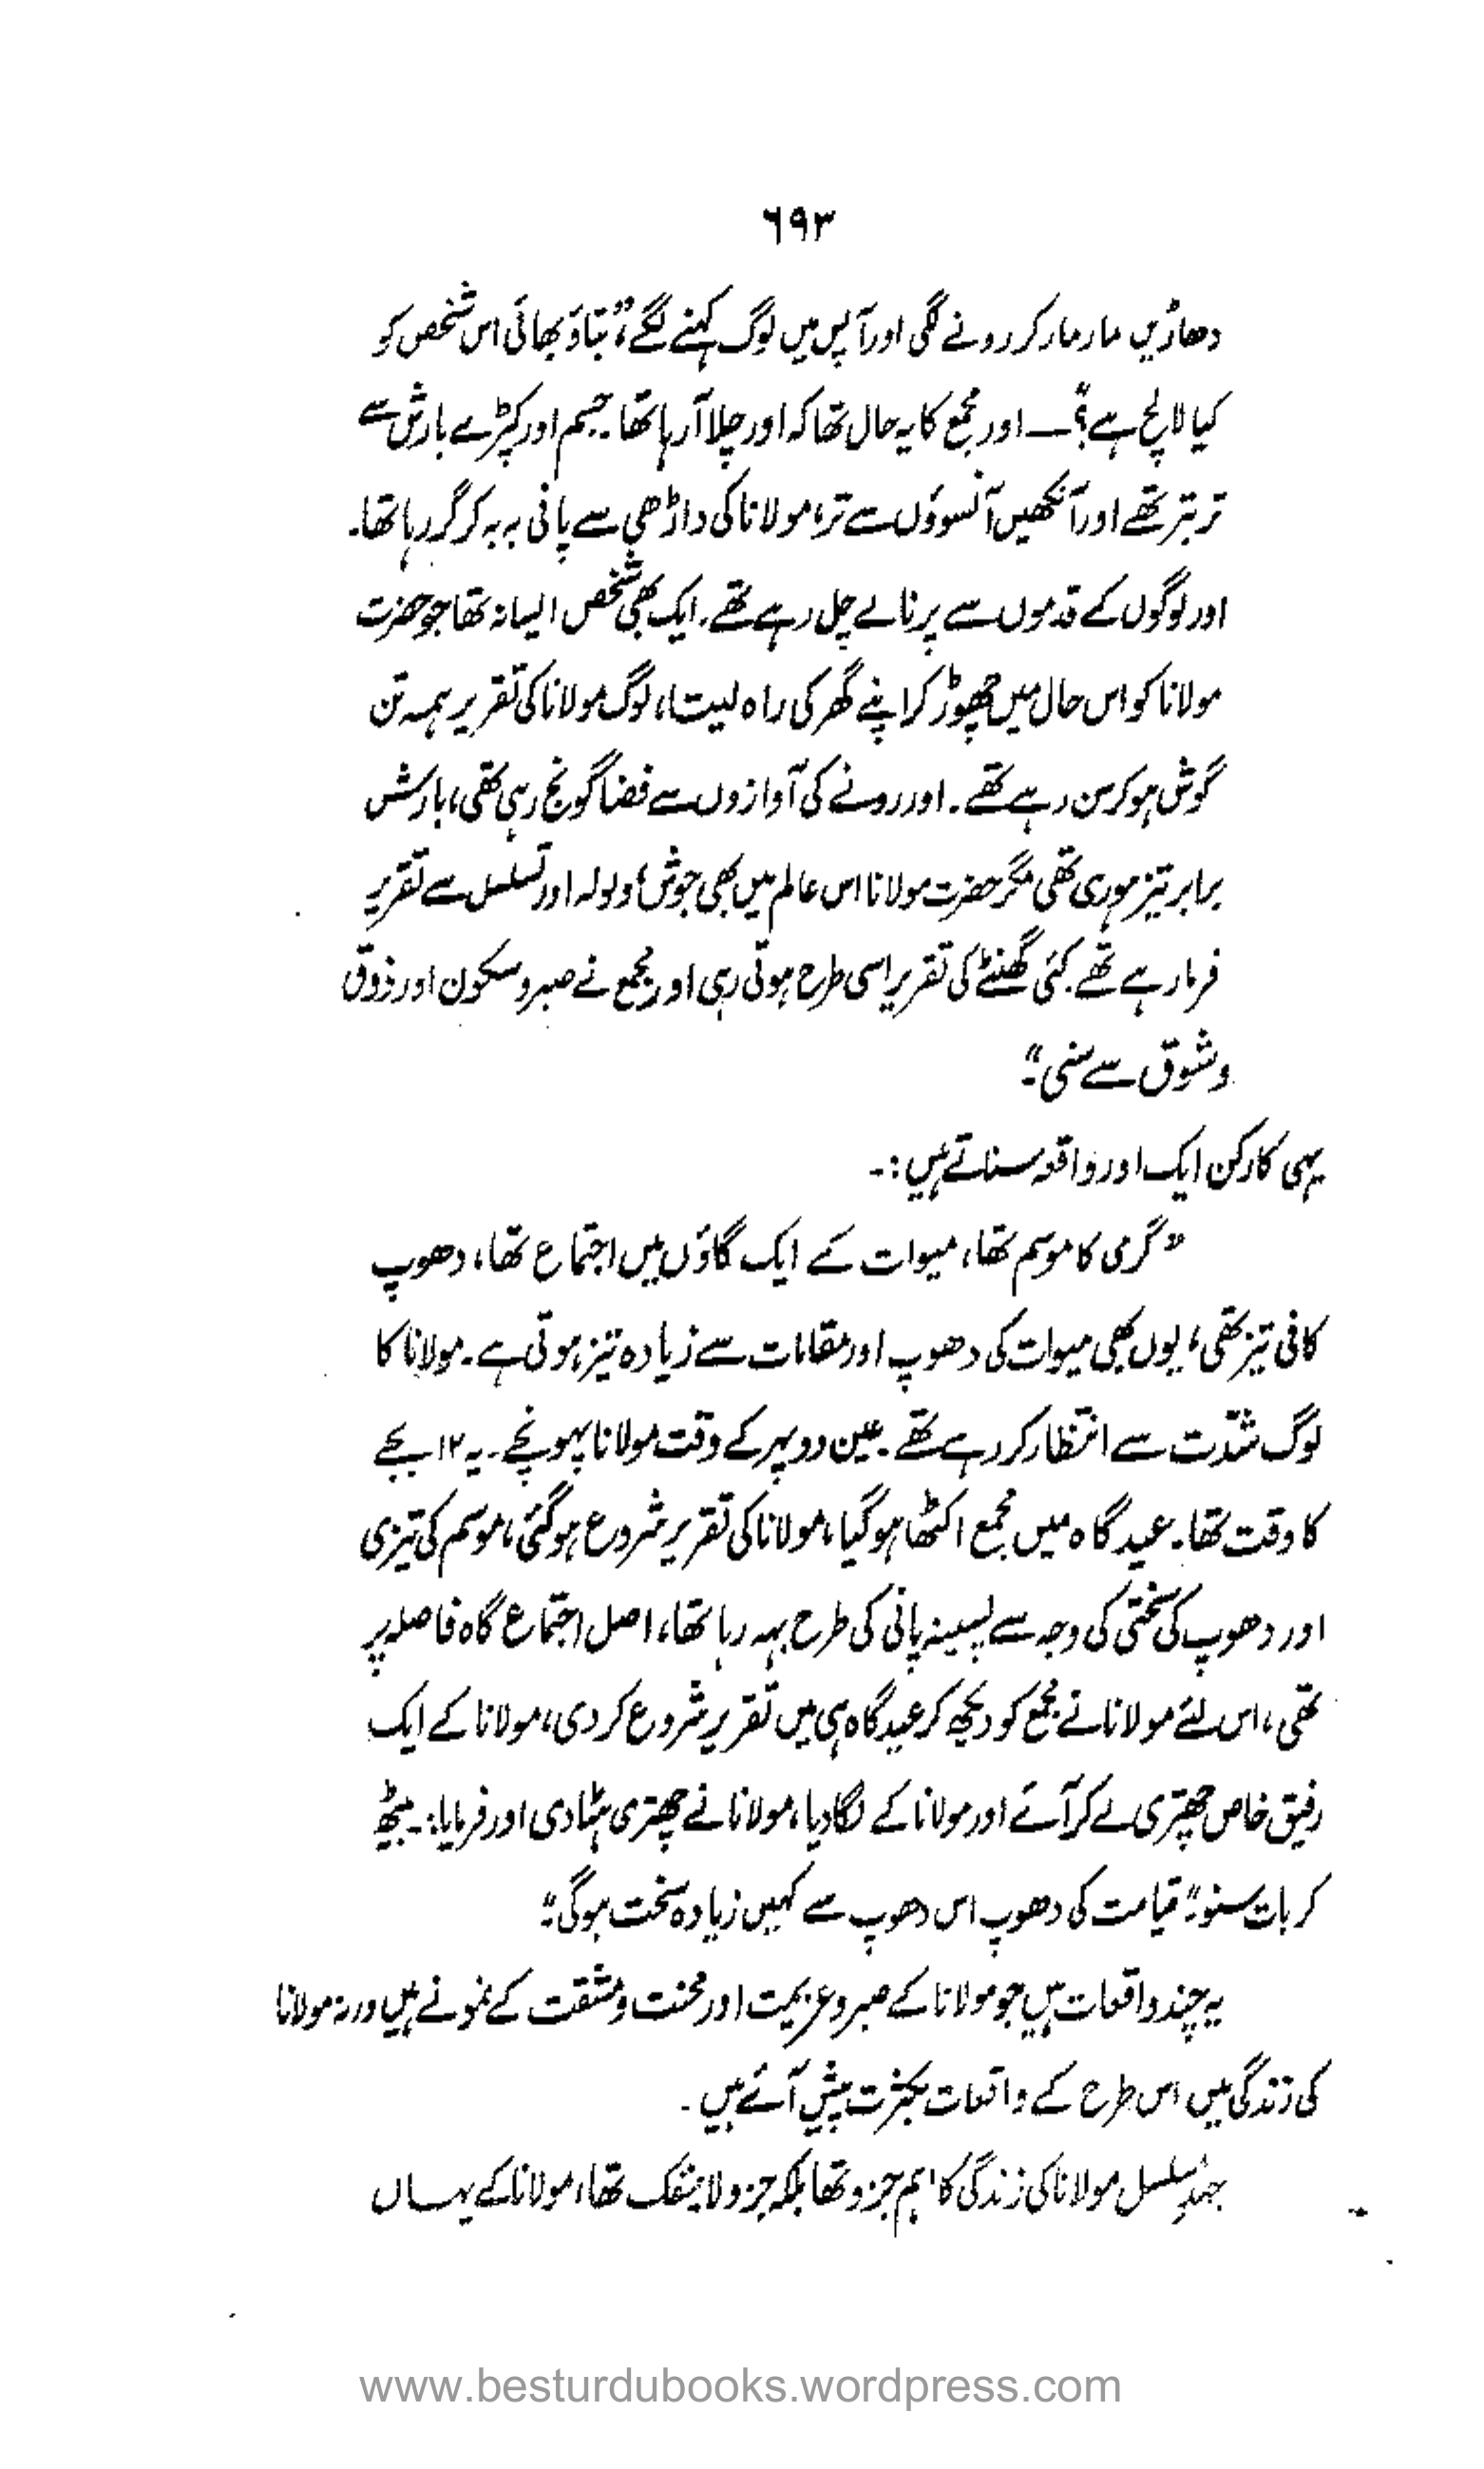 ۶۹۳
دھاڑیں مار مار کر رونے لگی اور آپس میں لوگ کہنے لگے، "بتاؤ بھائی اس شخص کو
کیا لالچ ہے؟" — اور مجمع کا یہ حال تھا کہ اور چلا آ رہا تھا۔ جسم اور کپڑے بارش سے
تر بتر تھے اور آنکھیں آنسوؤں سے تر، مولانا کی داڑھی سے پانی بہ بہ کر گر رہا تھا۔
اور لوگوں کے قدموں سے پرنالے چل رہے تھے۔ ایک بھی شخص ایسا نہ تھا جو حضرت
مولانا کو اس حال میں چھوڑ کر اپنے گھر کی راہ لیتا، لوگ مولانا کی تقریر ہمہ تن
گوش ہو کر سن رہے تھے۔ اور رونے کی آوازوں سے فضا گونج رہی تھی، بارش
برابر تیز ہو رہی تھی مگر حضرت مولانا اس عالم میں بھی جوش، ولولہ اور تسلسل سے تقریر
فرما رہے تھے۔ کئی گھنٹے کی تقریر اسی طرح ہوتی رہی اور مجمع نے صبر و سکون اور ذوق
و شوق سے سنی۔"
یہی کارکن ایک اور واقعہ سناتے ہیں:۔
"گرمی کا موسم تھا، میوات کے ایک گاؤں میں اجتماع تھا، دھوپ
کافی تیز تھی، یوں بھی میوات کی دھوپ اور مقامات سے زیادہ تیز ہوتی ہے۔ مولانا کا
لوگ شدّت سے انتظار کر رہے تھے۔ عین دوپہر کے وقت مولانا پہونچے۔ یہ ۱۲ بجے
کا وقت تھا۔ عید گاہ میں مجمع اکٹھا ہو گیا، مولانا کی تقریر شروع ہو گئی، موسم کی تیزی
اور دھوپ کی سختی کی وجہ سے پسینہ پانی کی طرح بہہ رہا تھا، اصل اجتماع گاہ فاصلہ پر
تھی، اس لئے مولانا نے مجمع کو دیکھ کر عید گاہ ہی میں تقریر شروع کر دی، مولانا کے ایک
رفیق خاص چھتری لے کر آئے اور مولانا کے لگا دیا، مولانا نے چھتری ہٹا دی اور فرمایا:۔ بیٹھ
کر بات سنو۔" قیامت کی دھوپ اس دھوپ سے کہیں زیادہ سخت ہوگی۔"
یہ چند واقعات ہیں جو مولانا کے صبر و عزیمت اور محنت و مشقت کے نمونے ہیں ورنہ مولانا
کی زندگی میں اس طرح کے واقعات بکثرت پیش آئے ہیں۔
جہدِ مسلسل مولانا کی زندگی کا اہم جزو تھا بلکہ جزو لاینفک تھا، مولانا کے یہاں
www.besturdubooks.wordpress.com